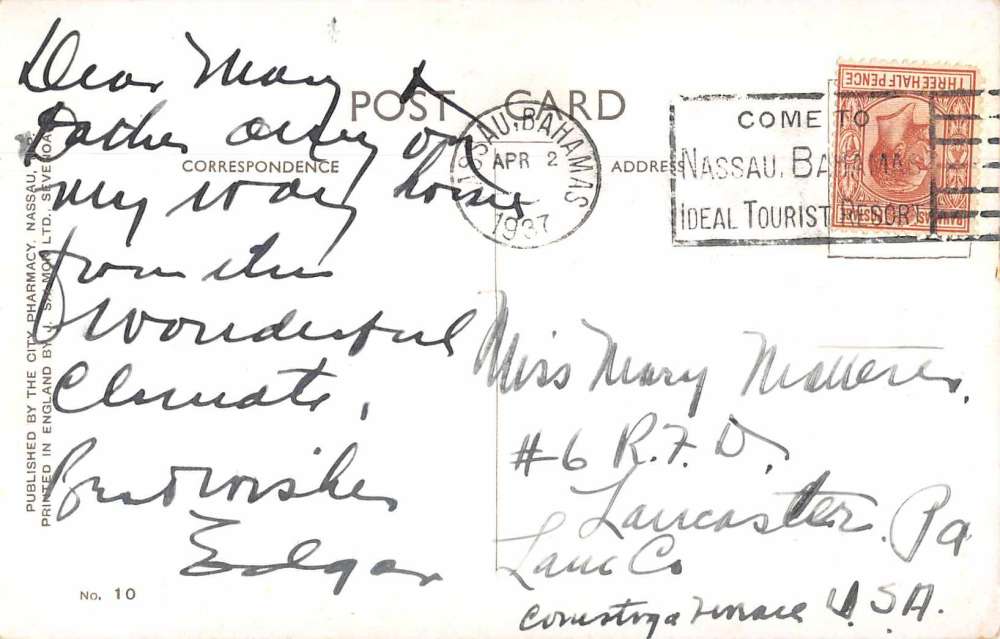 Dear Mary &
Father am on
my way home
from this
Wonderful
Climate,
Best wishes
Edgar
POST CARD
CORRESPONDENCE
ADDRESS
NASSAU, BAHAMAS
APR 2
1937
COME TO
NASSAU, BAHAMAS
IDEAL TOURIST RESORT
THREE HALF PENCE
BAHAMAS
Miss Mary
#6 R.F.D.
Lancaster, Pa
Lanc Co
Conestoga Terrace U.S.A.
PUBLISHED BY THE CITY PHARMACY, NASSAU,
PRINTED IN ENGLAND BY J. SALMON LTD., SEVENOA
No. 10